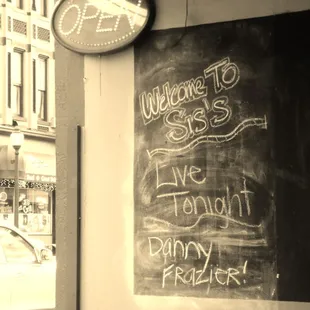 OPEN
Welcome To
Sis's
Live
Tonight
Danny
Frazier!